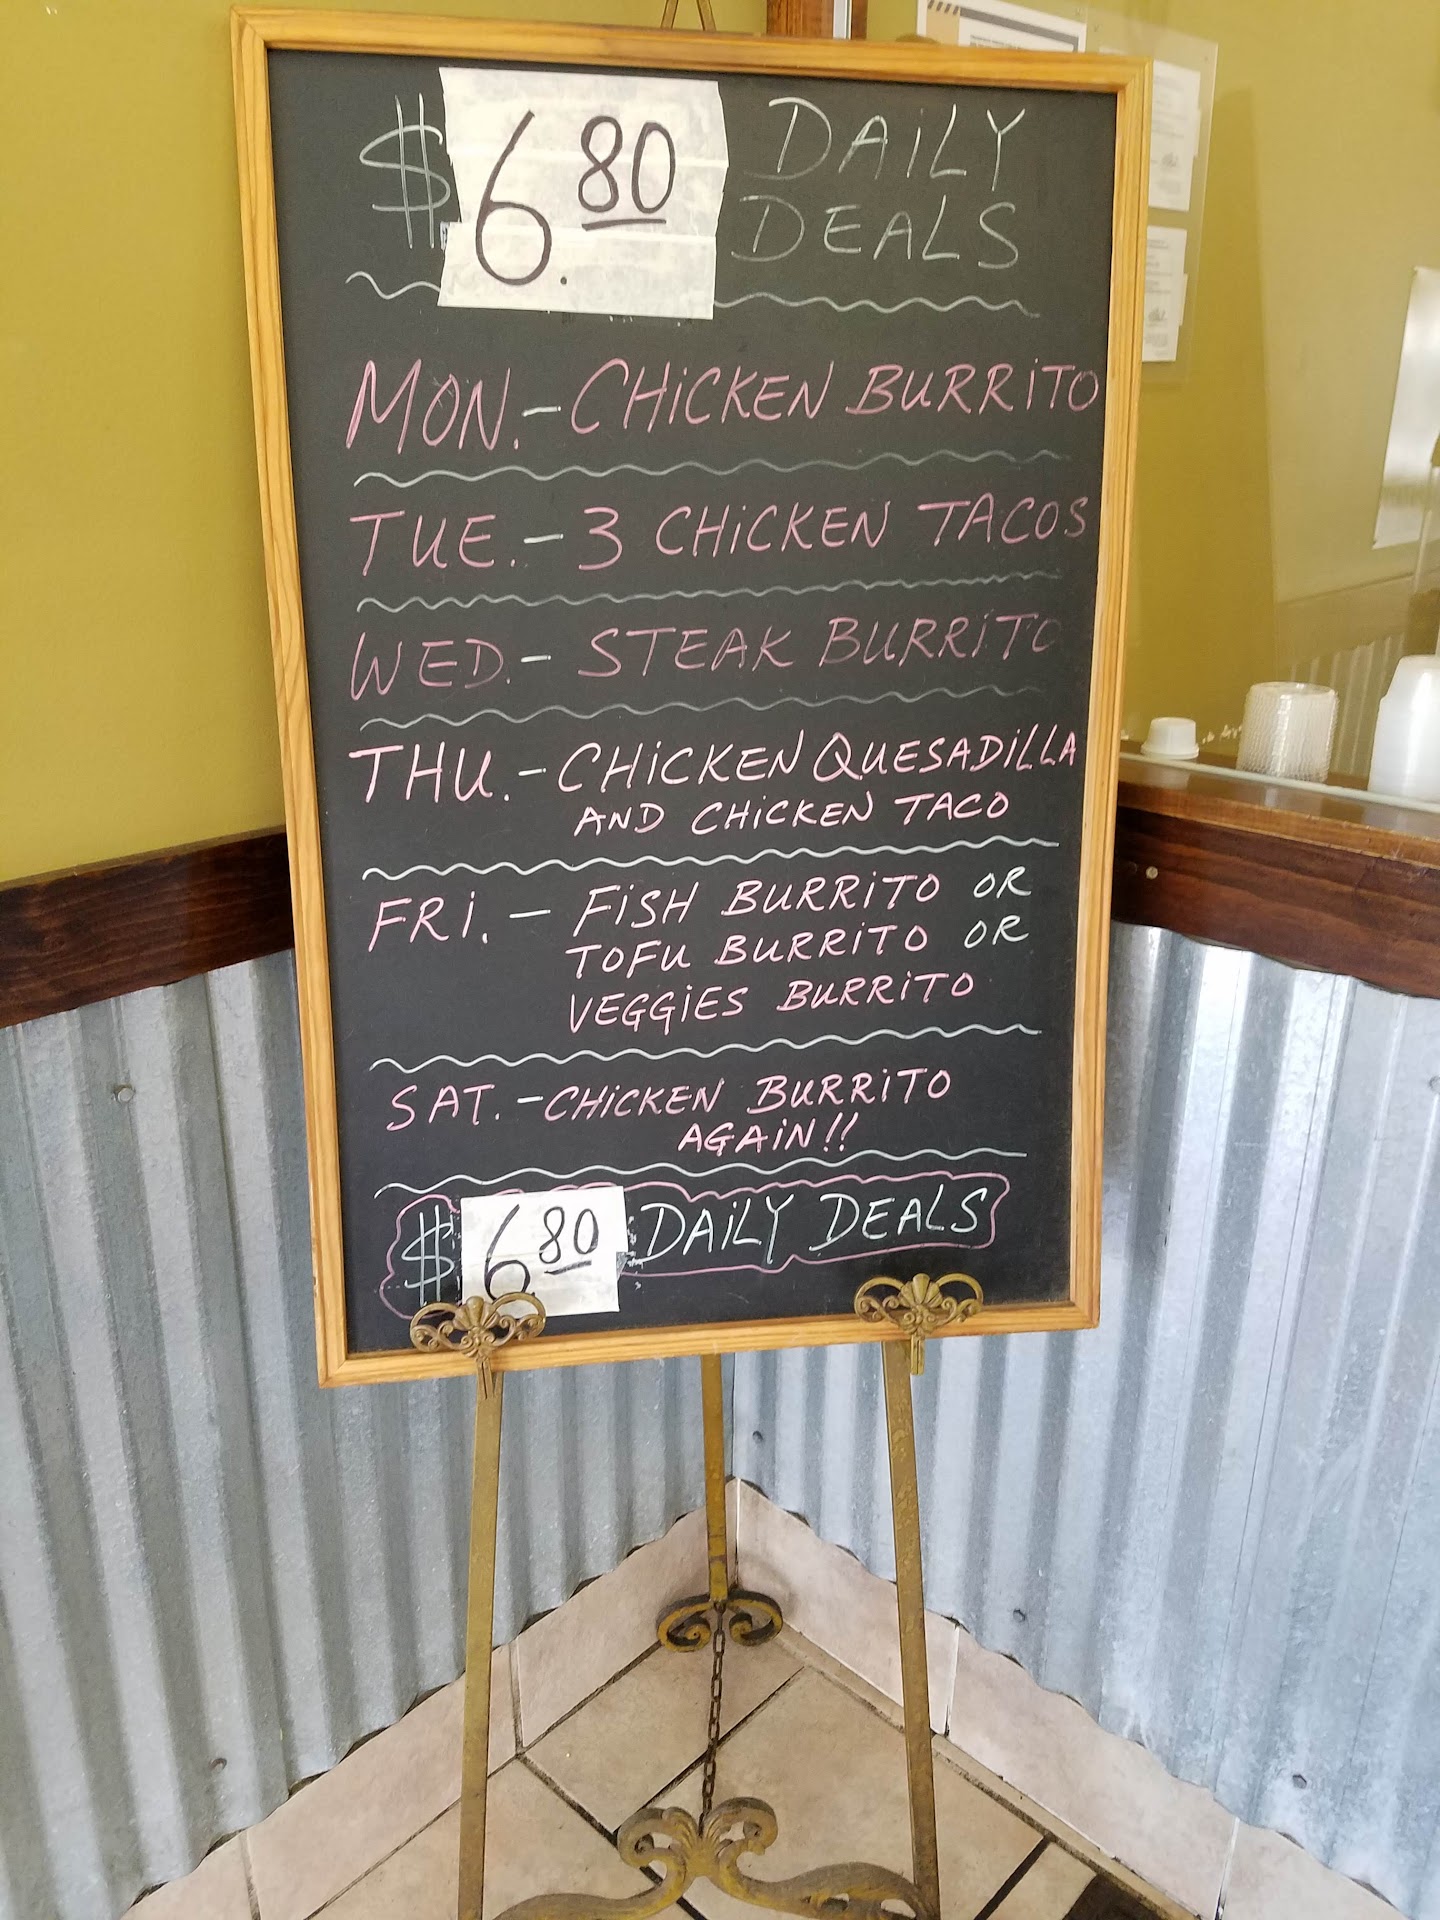 $6.80 DAILY
DEALS
MON.-CHICKEN BURRITO
TUE.-3 CHICKEN TACOS
WED.-STEAK BURRITO
THU.-CHICKEN QUESADILLA
AND CHICKEN TACO
FRI.-FISH BURRITO OR
TOFU BURRITO OR
VEGGIES BURRITO
SAT.-CHICKEN BURRITO
AGAIN!!
$6.80 DAILY DEALS